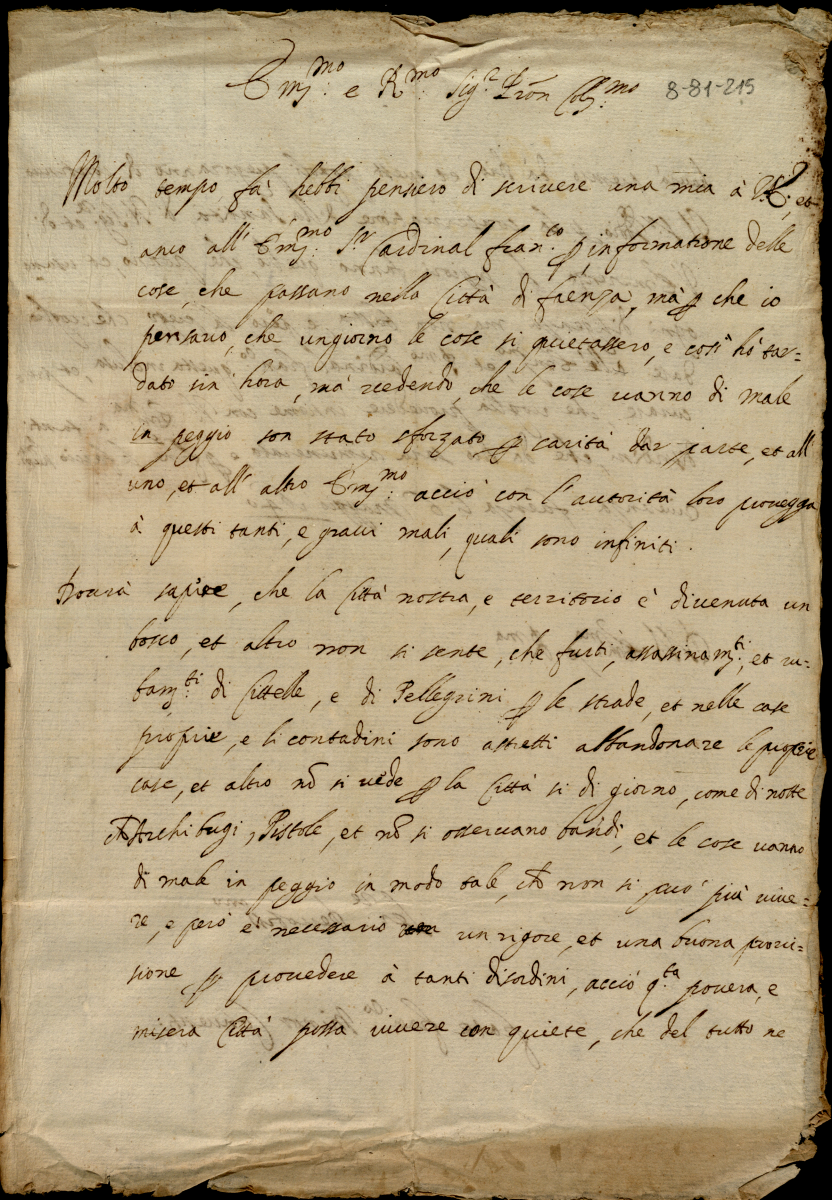 Em.mo e R.mo Sig.r Pron Col.mo 8-81-215
Molto tempo fà hebbi pensiero di scrivere una mia à V.E., et
anco all' Em.mo Sr Cardinal fran.co p informatione delle
cose, che passano nella Città di faenza, mà p che io
pensavo, che un giorno le cose si quietassero, e così hò tar=
dato sin hora, mà vedendo, che le cose vanno di male
in peggio son stato sforzato p carità dar parte, et all'
uno, et all' altro Em.mo acciò con l'autorità loro provegga
à questi tanti, e gravi mali, quali sono infiniti.
Dovrà sapere, che la Città nostra, e territorio è divenuta un
bosco, et altro non si sente, che furti, assassinam.ti, et ru=
bam.ti di Cittelle, e di Pellegrini p le strade, et nelle case
proprie, e li contadini sono astretti abbandonare le proprie
case, et altro nō si vede p la Città si di giorno, come di notte
ch Archibugi, Pistole, et nō si osservano bandi, et le cose vanno
di male in peggio in modo tale, ch non si può più vive=
re, e però è necessario un rigore, et una buona provi=
sione p provedere à tanti disordini, acciò q.ta povera, e
misera Città possa vivere con quiete, che del tutto ne